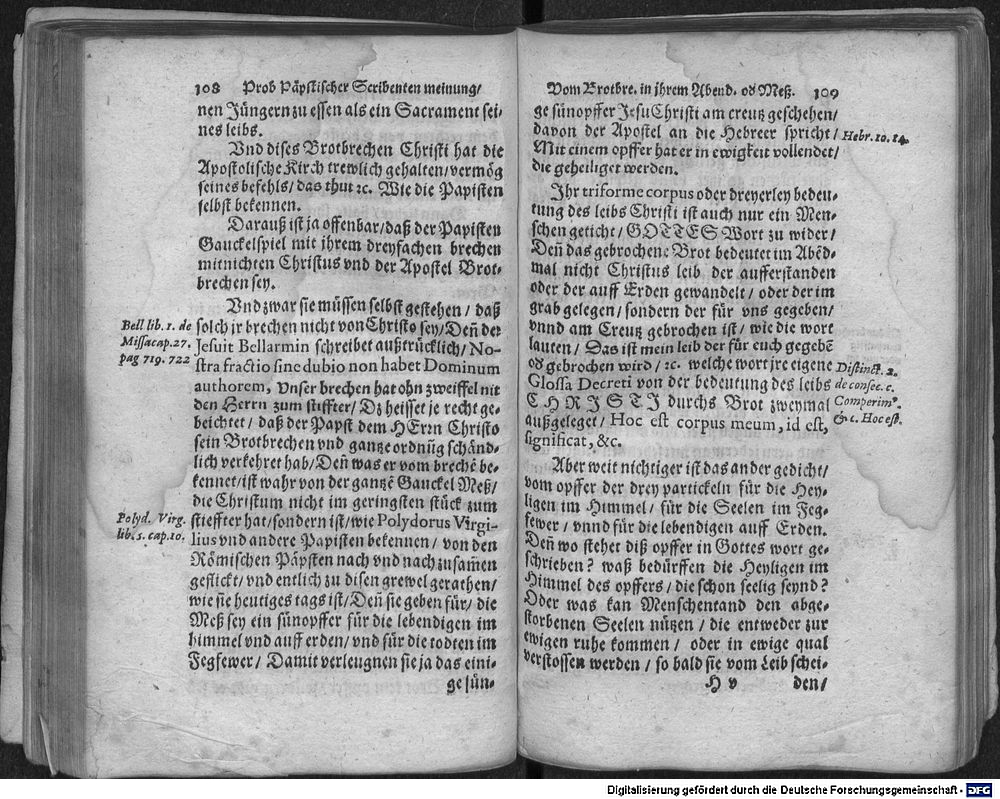 108 Prob Päpstischer Scribenten meinung/
nen Jüngern zu essen als ein Sacrament sei-
nes leibs.
Vnd dises Brotbrechen Christi hat die
Apostolische Kirch trewlich gehalten/ vermög
seines befehls/ das thut ꝛc. Wie die Papisten
selbst bekennen.
Darauß ist ja offenbar/ daß der Papisten
Gauckelspiel mit jhrem dreyfachen brechen
mitnichten Christus vnd der Apostel Brot-
brechen sey.
Vnd zwar sie müssen selbst gestehen/ daß
solch jr brechen nicht von Christo sey/ Deñ der
Jesuit Bellarmin schreibet außtrücklich/ No-
stra fractio sine dubio non habet Dominum
authorem, Vnser brechen hat ohn zweiffel nit
den Herrn zum stiffter/ Dz heisset je recht ge-
beichtet/ daß der Papst dem HErrn Christo
sein Brotbrechen vnd gantze ordnũg schänd-
lich verkehret hab/ Deñ was er vom brechẽ be-
kennet/ ist wahr von der gantzẽ Gauckel Meß/
die Christum nicht im geringsten stück zum
stieffter hat/ sondern ist/ wie Polydorus Virgi-
lius vnd andere Papisten bekennen/ von den
Römischen Päpsten nach vnd nach zusam̃en
geflickt/ vnd entlich zu disen grewel gerathen/
wie sie heutiges tags ist/ Deñ sie geben für/ die
Meß sey ein sünopffer für die lebendigen im
himmel vnd auff erden/ vnd für die todten im
Fegfewer/ Damit verleugnen sie ja das eini-
ge sün-
Bell lib. 1. de
Missa cap. 27.
pag 719. 722
Polyd. Virg.
lib. 5. cap. 10.
Vom Brotbre. in jhrem Abend. od Meß. 109
ge sünopffer Jesu Christi am creutz geschehen/
davon der Apostel an die Hebreer spricht/
Mit einem opffer hat er in ewigkeit vollendet/
die geheiliget werden.
Jhr triforme corpus oder dreyerley bedeu-
tung des leibs Christi ist auch nur ein Men-
schen geticht/ GOTTES Wort zu wider/
Deñ das gebrochene Brot bedeutet im Abẽd-
mal nicht Christus leib der aufferstanden
oder der auff Erden gewandelt/ oder der im
grab gelegen/ sondern der für vns gegeben/
vnnd am Creutz gebrochen ist/ wie die wort
lauten/ Das ist mein leib der für euch gegebẽ
od gebrochen wird/ ꝛc. welche wort jre eigene
Glossa Decreti von der bedeutung des leibs
CHRISTI durchs Brot zweymal
außgeleget/ Hoc est corpus meum, id est,
significat, &c.
Aber weit nichtiger ist das ander gedicht/
vom opffer der drey partickeln für die Hey-
ligen im Himmel/ für die Seelen im Feg-
fewer/ vnnd für die lebendigen auff Erden.
Deñ wo stehet diß opffer in Gottes wort ge-
schrieben? waß bedürffen die Heyligen im
Himmel des opffers/ die schon seelig seynd?
Oder was kan Menschentand den abge-
storbenen Seelen nützen/ die entweder zur
ewigen ruhe kommen/ oder in ewige qual
verstossen werden/ so bald sie vom Leib schei-
H v den/
Hebr. 10. 14.
Distinct. 2.
de consec. c.
Comperim⁹.
& c. Hoc est.
Digitalisierung gefördert durch die Deutsche Forschungsgemeinschaft - DFG